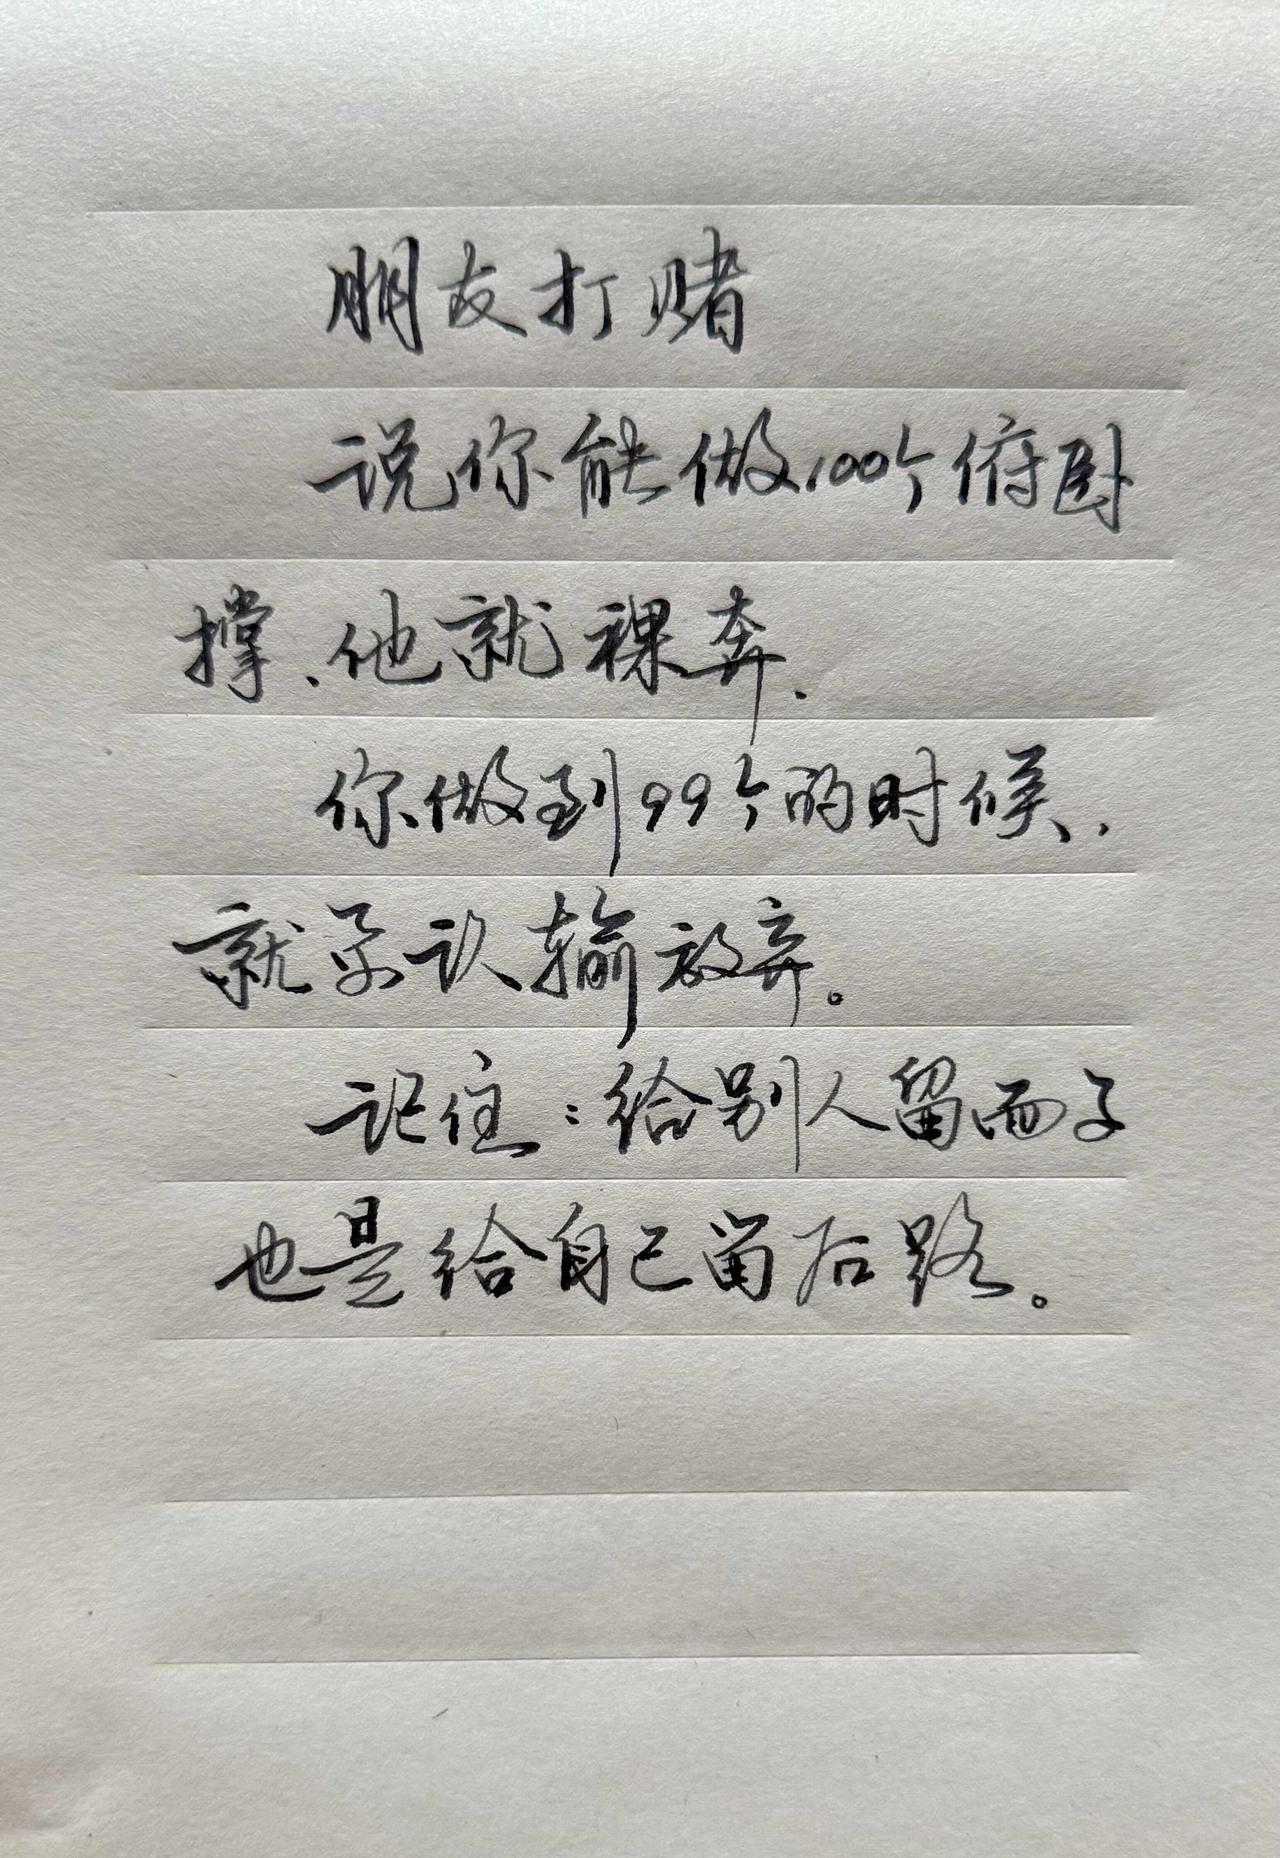 朋友打赌
说你能做100个俯卧
撑、他就裸奔.
你做到99个的时候、.
就要认输放弃。
记住：给别人留面子
也是给自己留后路。